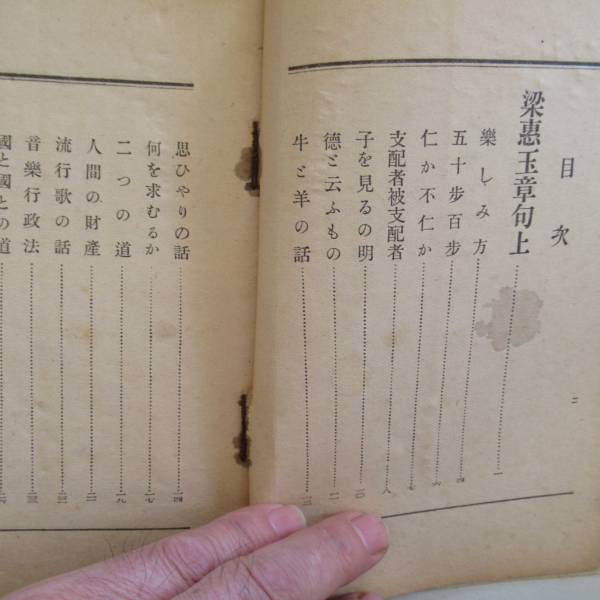 目次
梁惠王章句上……一
樂しみ方……四
五十步百步……六
仁か不仁か……七
支配者被支配者……八
子を見るの明……一〇
德と云ふもの……一一
牛と羊の話……一二
思ひやりの話……一四
何を求むるか……一七
二つの道……一九
人間の財產……二一
流行歌の話
音樂行政法
國と國との道